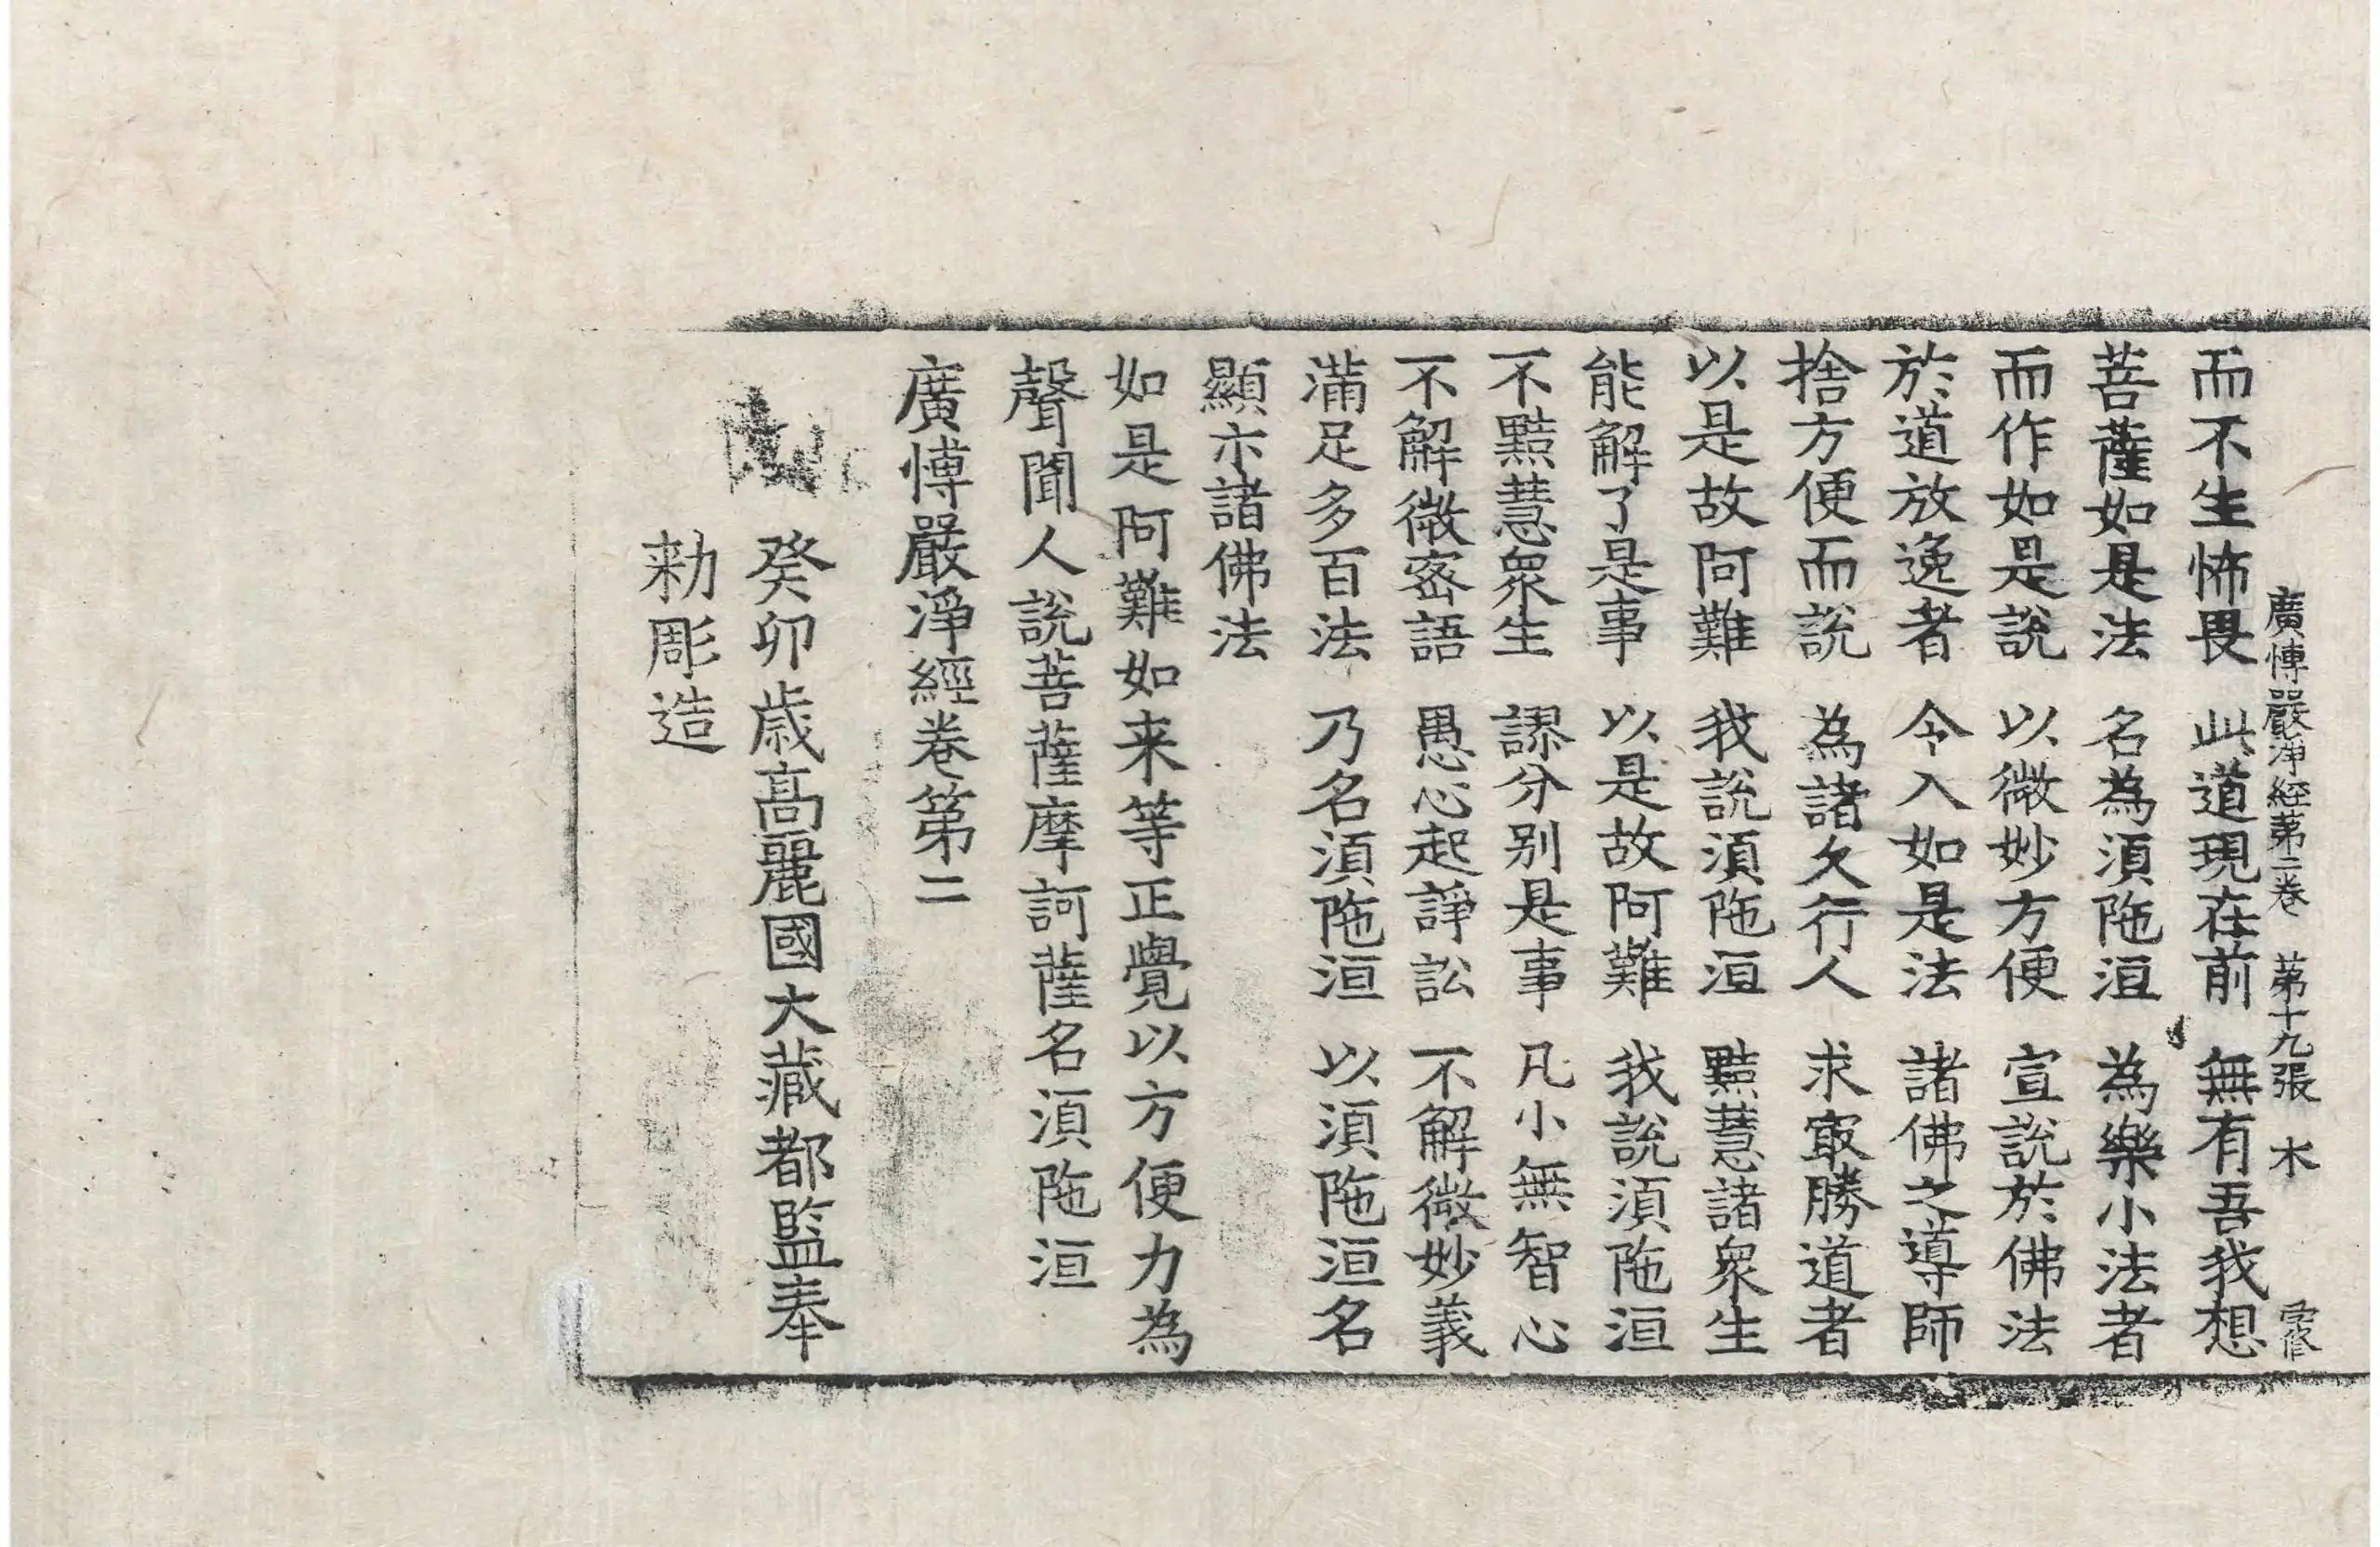 廣愽嚴淨經第二卷　第十九張　木
而不生怖畏　此道現在前　無有吾我想
菩薩如是法　名為湏陁洹　為樂小法者
而作如是說　以微妙方便　宣說於佛法
於道放逸者　令入如是法　諸佛之導師
捨方便而說　為諸久行人　求㝡勝道者
以是故阿難　我說湏陁洹　黠慧諸衆生
能解了是事　以是故阿難　我說湏陁洹
不黠慧衆生　謬分别是事　凡小無智心
不解微密語　愚心起諍訟　不解微妙義
滿足多百法　乃名湏陁洹　以湏陁洹名
顯示諸佛法
如是阿難如来等正覺以方便力為
聲聞人說菩薩摩訶薩名湏陁洹
廣愽嚴淨經卷第二
癸卯歳高麗國大藏都監奉
勑彫造